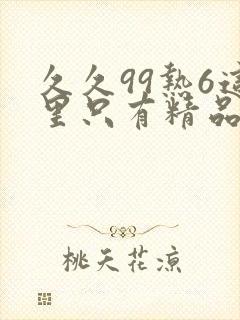 久久99熱6這
里只有精品
桃天花涼